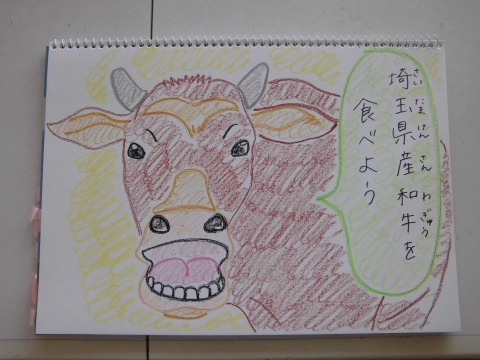 埼玉県産和牛を
さいたまけんさんわぎゅう
食べよう